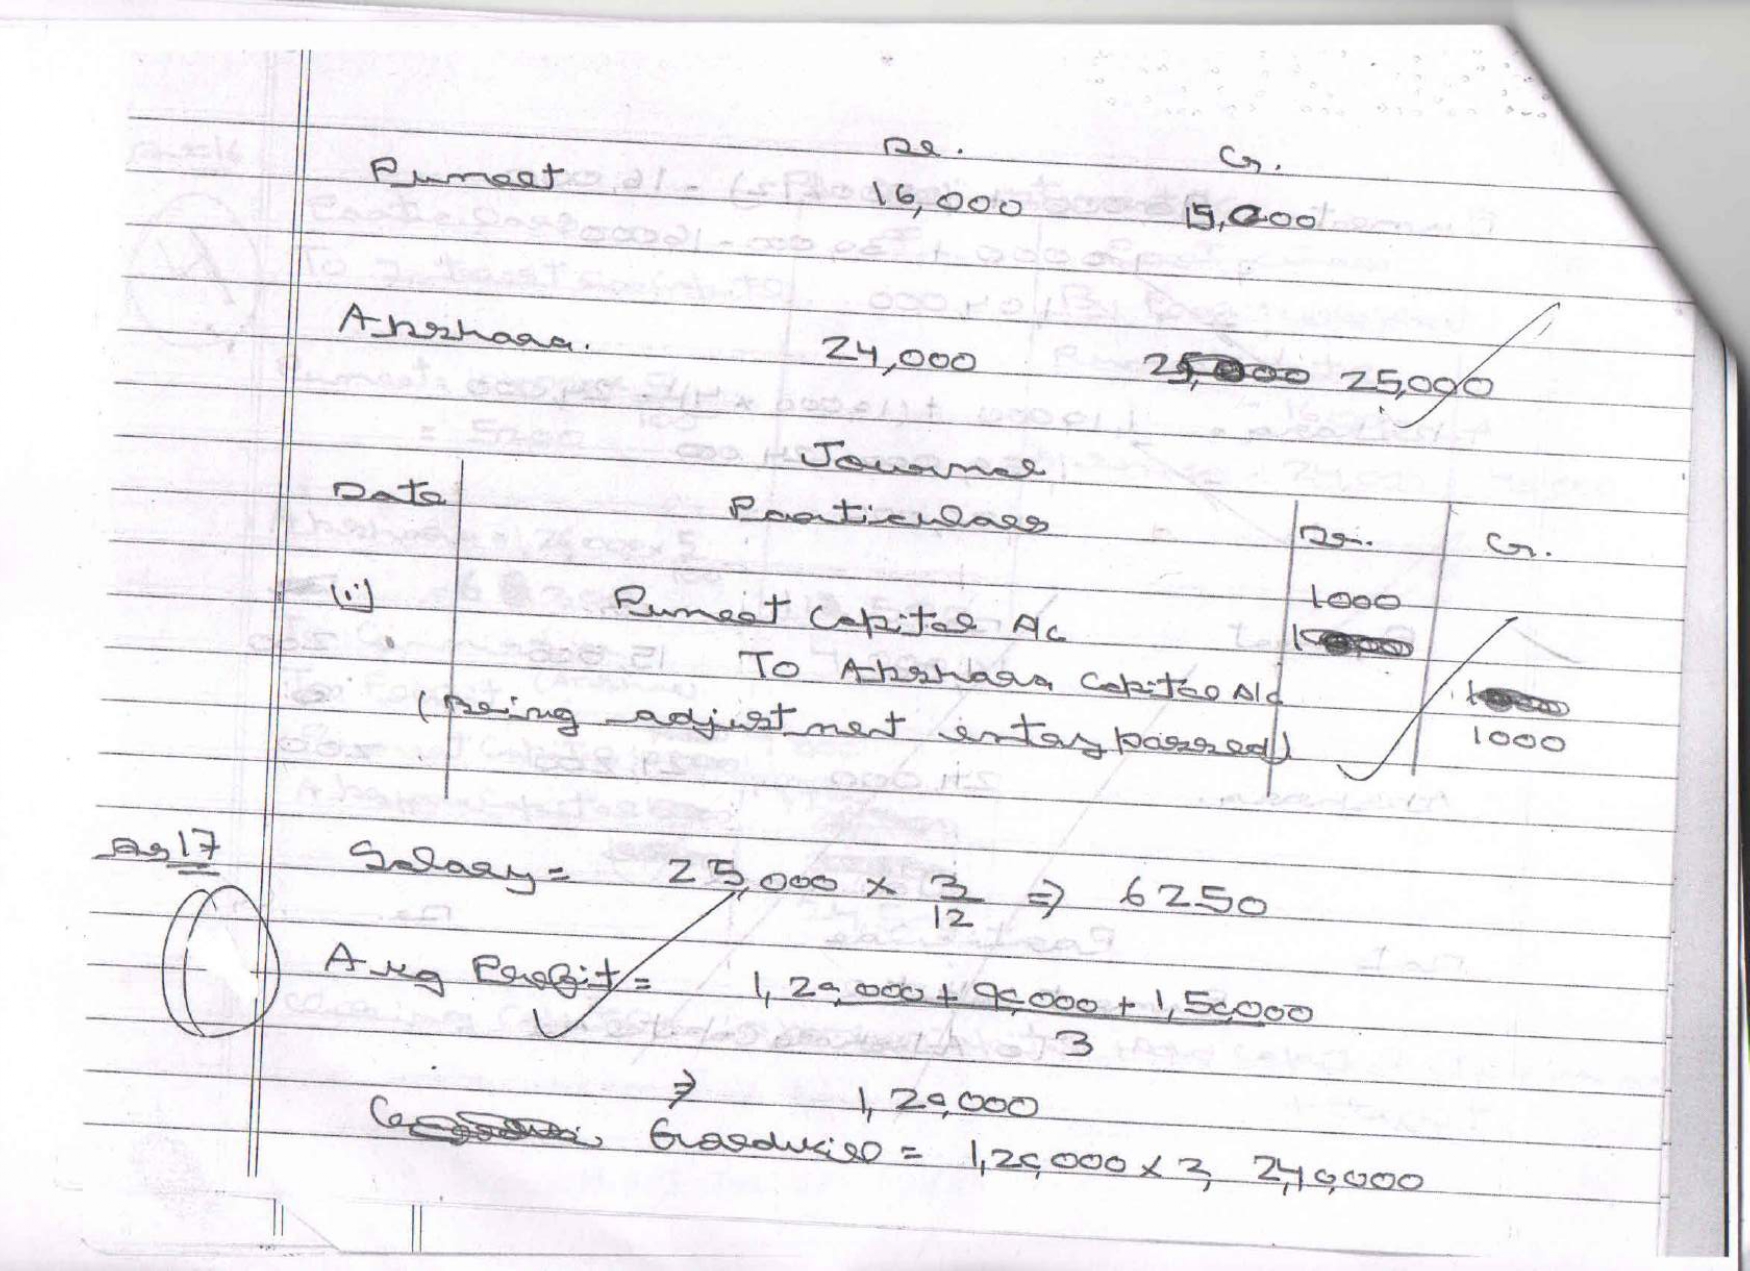 Dr. Cr.
Puneet 16,000 15,000
Akshara. 24,000 25,000
Journal
Date Particulars Dr. Cr.
(i) Puneet Capital A/c 1000
To Akshara Capital A/c
1000
(Being adjustment entry passed)
As 17 Salary = 25,000 × 3/12 ⇒ 6250
Avg Profit = 1,20,000 + 90,000 + 1,50,000
3
⇒ 1,20,000
Goodwill = 1,20,000 × 2, 2,40,000